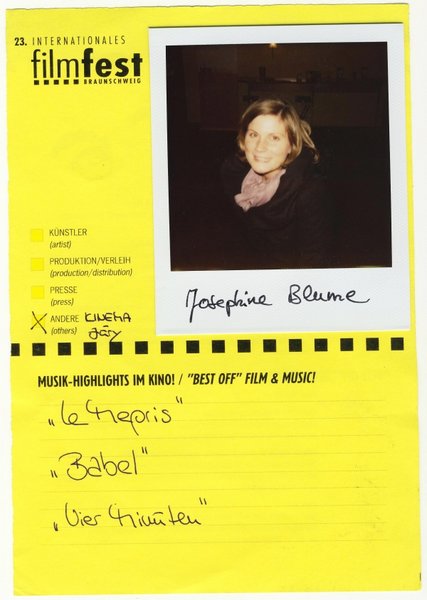 23. INTERNATIONALES
filmfest
BRAUNSCHWEIG
KÜNSTLER
(artist)
PRODUKTION/VERLEIH
(production/distribution)
PRESSE
(press)
ANDERE KINEMA
(others) Jury
Josephine Blume
MUSIK-HIGHLIGHTS IM KINO! / "BEST OFF" FILM & MUSIC!
„Le Mepris"
„Babel"
„Vier Minuten"